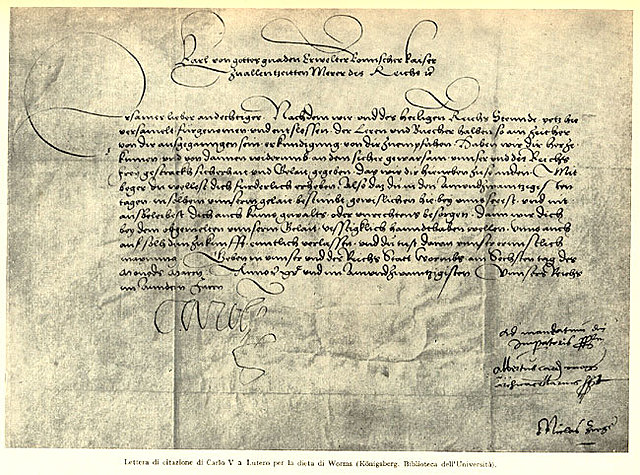 Karl von gottes gnaden Erwelter Romischer kaiser
zu allen tzeitten Merer des Reichs
Ersamer lieber andechtiger. Nachdem wir und des heiligen Reichs Stennde yetz hie
versamelt furgenomen und entslossen der Leren und Buecher halben so ain zeither
von dir ausganngen sein erkundigung von dir zu empfahen Haben wir dir herzu
kumen und von dannen widerumb an dein sicher gewarsam unnser und des Reichs
frey gestracks sicherhait und Gelait gegeben das wir dir hieneben zusennden Mit
beger du wellest dich furderlich erheben Also das du in den ainundzwaintzig
tagen in solhem unnserm gelait bestimbt gewislichen hie bey unns seiest und nit
aussenbleibst dich auch kains gewalts oder unrechtens besorgen Dann wir dich
bey dem obgemelten unnserm Gelait vestigklich hanndthaben wellen Unns auch
auf solh dein zukunfft enntlich verlassen und du tust daran unnser ernnstlich
maynung Geben in unnser und des Reichs Statt Wormbs am Sechsten tag des
Monads Marcy Anno und im Ainundzwaintzigisten Unnsers Reichs
im Annden Jaren
Carol
Ad mandatum
Imperatoris
Albertus card
archicancellarius
Niclas
Lettera di citazione di Carlo V a Lutero per la dieta di Worms (Königsberg. Biblioteca dell'Università).